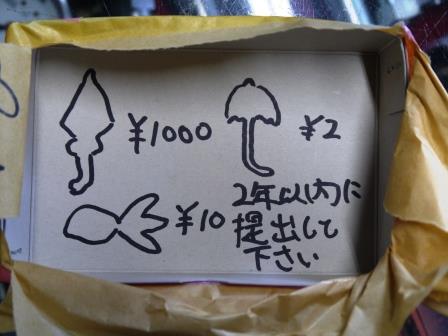 ¥1000
¥2
¥10
2年以内に
提出して
下さい